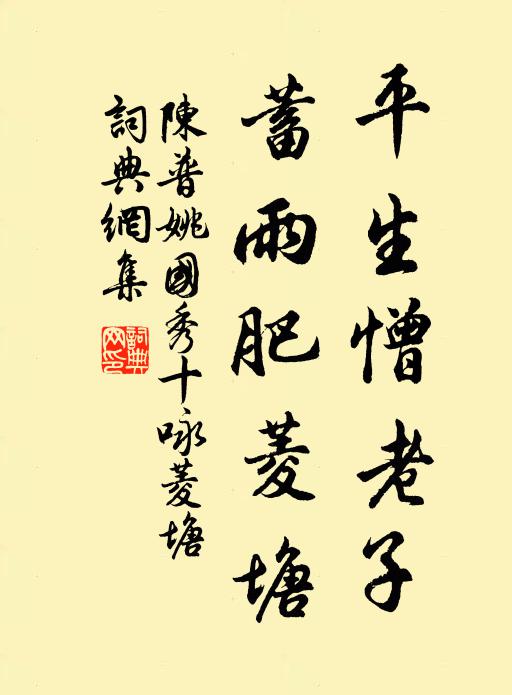 平生憎老子
蓄雨肥菱塘
陳普姚國秀十咏菱塘
詞典網集
詞典
网印